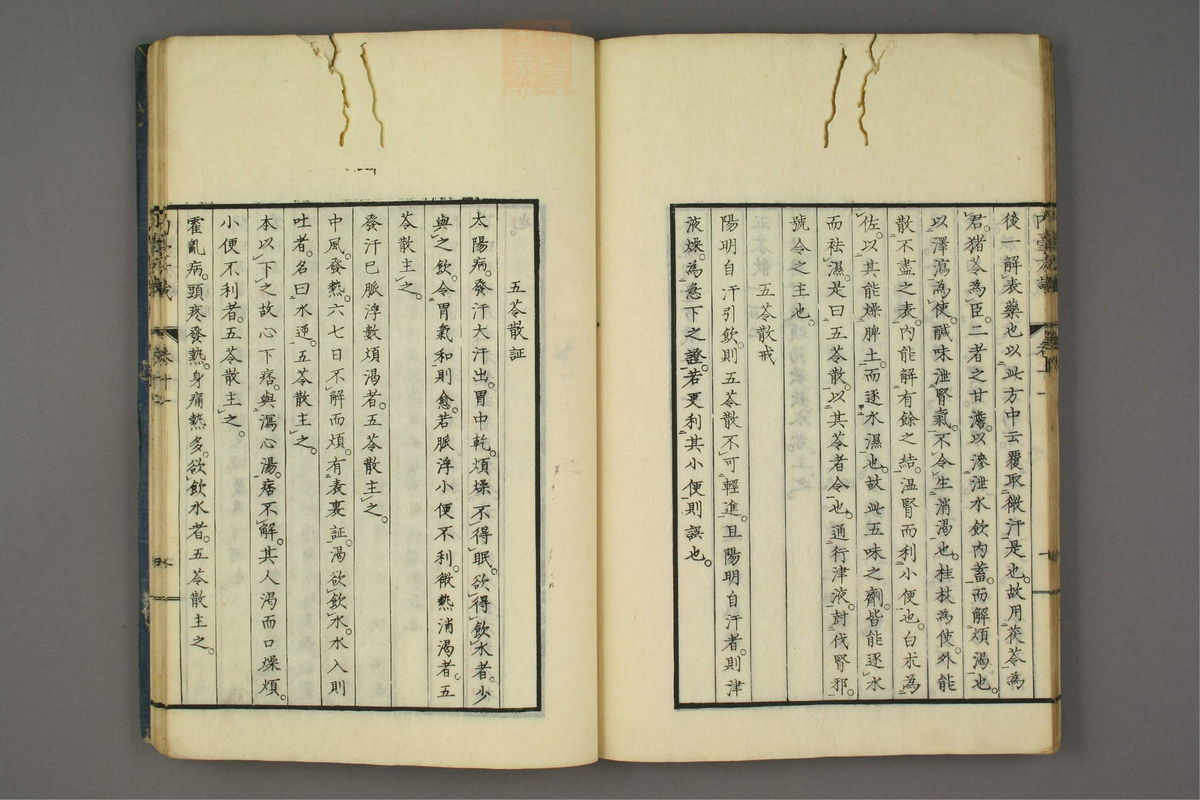 後一解表藥也以此方中云覆取微汗是也。故用茯苓為
君。猪苓為臣。二者之甘澹。以滲泄水飲内蓄。而解煩渴也。
以澤瀉為使。醎味泄腎氣。不令生消渴也。桂枝為使。外能
散不盡之表。内能解有餘之結。温腎而利小便也。白朮為
佐。以其能燥脾土。而逐水濕也。故此五味之劑。皆能逐水
而祛濕。是曰五苓散。以其苓者令也。通行津液。討伐腎邪。
號令之主也。
五苓散戒
陽明自汗引飲。則五苓散不可輕進。且陽明自汗者。則津
液燥。為急下之證。若更利其小便則誤也。
五苓散証
太陽病。發汗大汗出。胃中乾。煩燥不得眠。欲得飲水者。少
與之飲。令胃氣和則愈。若脈浮小便不利。微熱消渴者。五
苓散主之。
發汗已脈浮數煩渴者。五苓散主之。
中風。發熱。六七日不解而煩。有表裏証。渴欲飲水。水入則
吐者。名曰水逆。五苓散主之。
本以下之故心下痞。與瀉心湯。痞不解。其人渴而口燥煩。
小便不利者。五苓散主之。
霍亂病。頭疼發熱。身痛熱多。欲飲水者。五苓散主之。